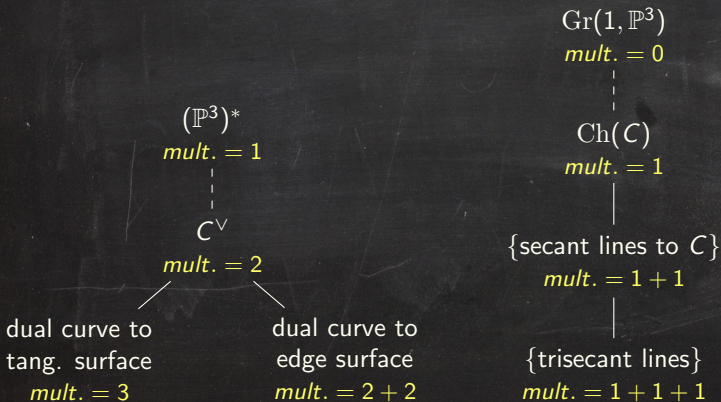 (ℙ³)*
mult. = 1
C^∨
mult. = 2
dual curve to
tang. surface
mult. = 3
dual curve to
edge surface
mult. = 2 + 2
Gr(1, ℙ³)
mult. = 0
Ch(C)
mult. = 1
{secant lines to C}
mult. = 1 + 1
{trisecant lines}
mult. = 1 + 1 + 1